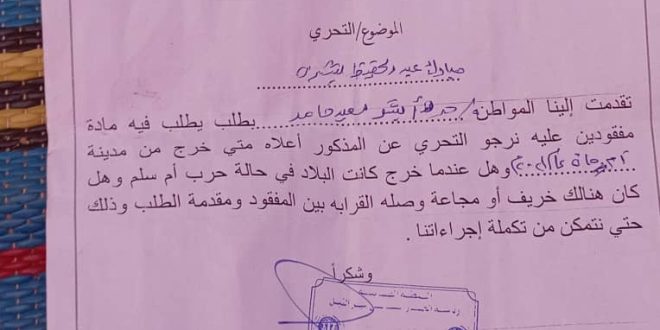 الموضوع/التحري
مبارك عبد الحفيظ بشرى
تقدمت إلينا المواطنة/ بشر سعيد حامد بطلب يطلب فيه مادة
مفقودين عليه نرجو التحري عن المذكور أعلاه متي خرج من مدينة
وهل عندما خرج كانت البلاد في حالة حرب أم سلم وهل
كان هنالك خريف أو مجاعة وصله القرابه بين المفقود ومقدمة الطلب وذلك
حتي نتمكن من تكملة إجراءاتنا .
وشكراً